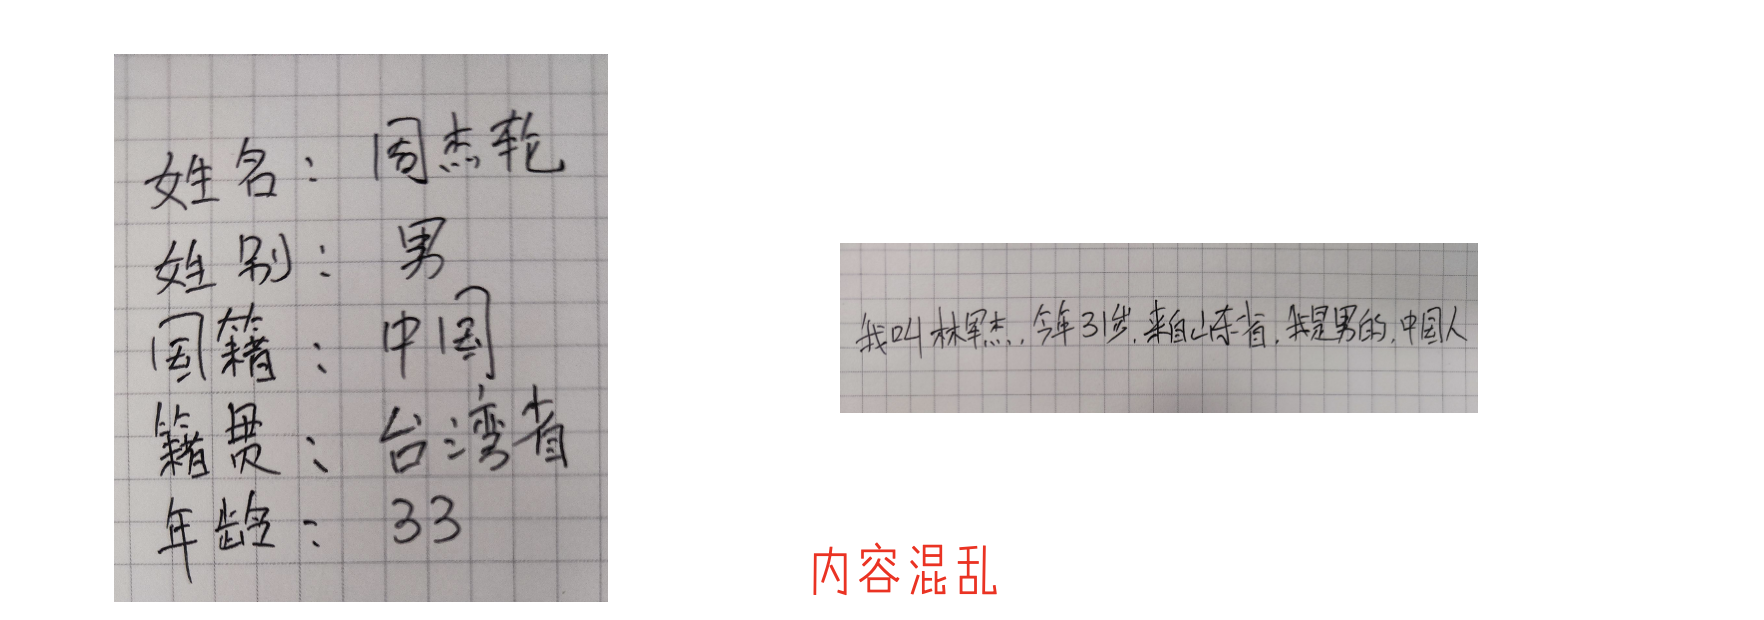 姓名：周杰轮
姓别：男
国籍：中国
籍贯：台湾省
年龄：33
我叫林军杰，今年31岁，来自山东省，我是男的，中国人
内容混乱